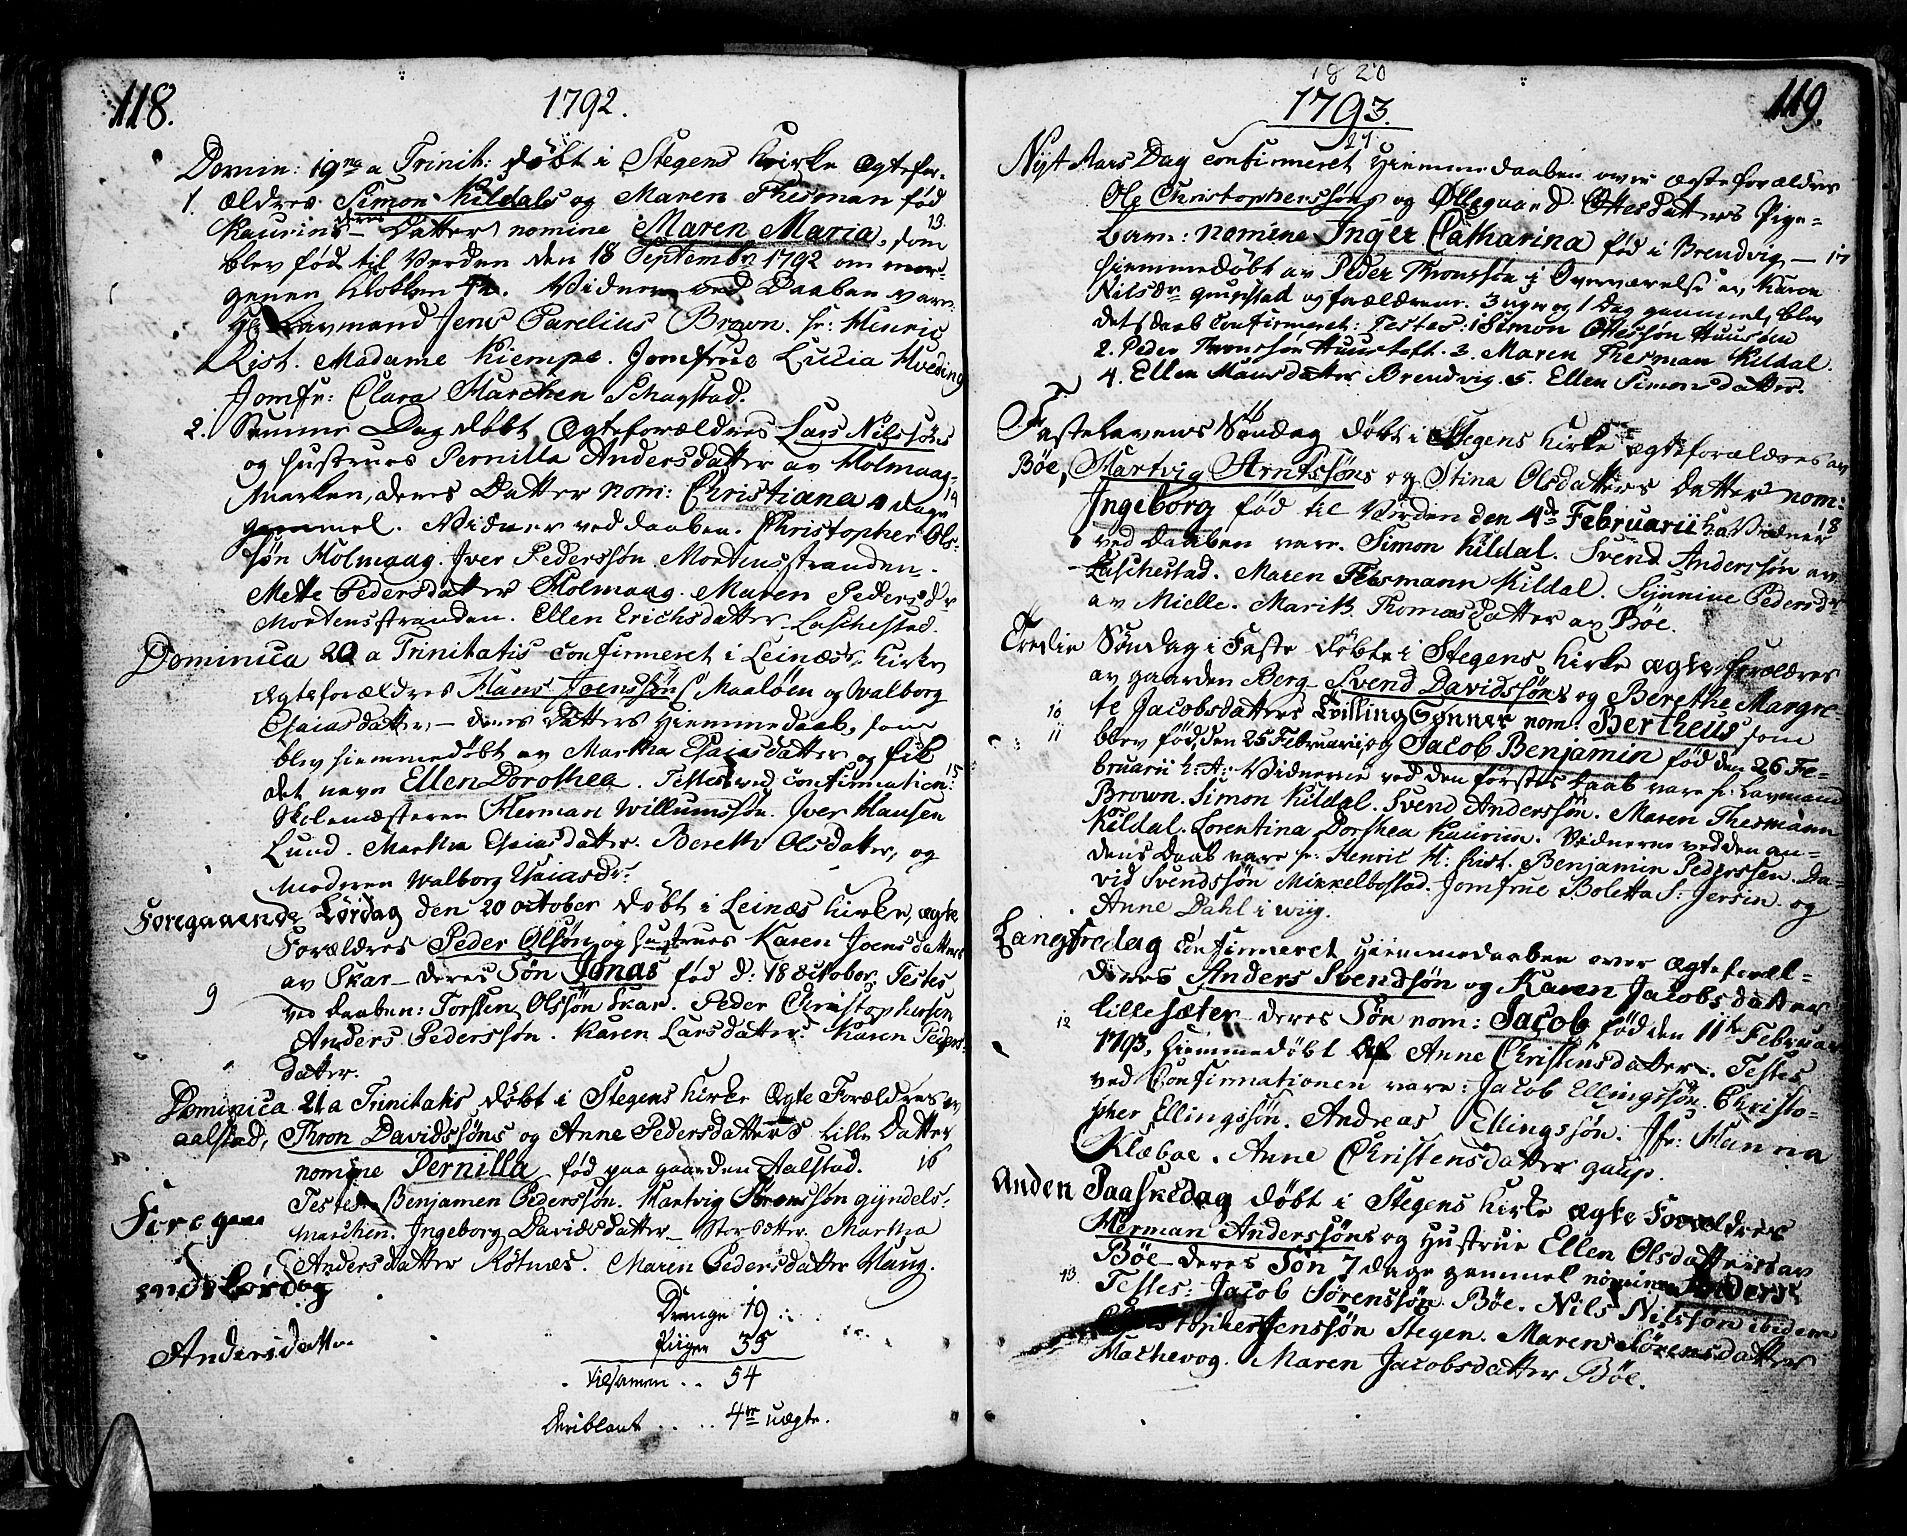 118.
1792.
Domin: 19na a Trinit: döbt i Stegens Kirke Ægtefor-
1. ældres Simon Kildals og Maren Thesman fød
Kaurins deres Datter nomine Maren Maria, som 13.
blev fød til Verden den 18 Septembr 1792 om mor-
genen Klokken. Vidner ved Daaben vare
Lavmand Jens Parelius Brown. hr: Henric
Rist. Madame Kiempe. Jomfrue Lucia Hveding
Jomfr: Clara Marchen Schagstad.
2. Samme Dag døbt Ægteforældres Lars Nilssöns
og hustrues Pernilla Andersdatter av Holmaag-
Marken, deres Datter nom: Christiana 4 dage 14
gammel. Vidner ved daaben. Christopher Ols-
søn Holmaag. Iver Pederssøn Mortensstranden.
Mette Pedersdatter Holmaag. Maren Pedersdr
Mortensstranden. Ellen Erichsdatter Laschestad.
Dominica 20 a Trinitatis confirmeret i Leinæss Kirke
Ægteforældres Hans Joenssöns Maalöen og Walborg
Esaiasdatter, - deres Datters Hiemmedaab, som
blev hiemmedöbt av Martha Esaiasdatter og fik
det navn Ellen Dorothea. Testes ved Confirmation: 15
Skolemæsteren Herman Willumssøn. Iver Hansen
Lund. Martha Esaiasdatter. Berethe Olsdatter, og
Moderen Walborg Esaiasdr.
Foregaaende Lørdag den 20 October døbt i Leinæs Kirke, ægte
Forældres Peder Olsøn og hustrues Karen Joensdatters
av Skar - deres Søn Jonas fød d: 18 October. Testes
9 ved daaben: Torsten Olssøn Skar. Peder Christophersen
Anders Pederssøn. Karen Larsdatter. Karen Peders-
datter.
Dominica 21 a Trinitatis døbt i Stegens Kirke Ægte Forældres av
aalstad, Thron Davidssøns og Anne Pedersdatters lille Datter
nomine Pernilla fød paa gaarden Aalstad. 16
Testes Benjamen Pederssøn. Hartvig Sörenssøn gyndels-
Marchen. Ingeborg Davidsdatter - Martha
Andersdatter Rötnæs. Maren Pedersdatter Haug.
Foregaa
ende Lördag
Andersdatter
Drenge 19
Piiger 35
tilsamen .. 54
Deriblant .. 4re uægte.
1820
1793.
119.
17
Nyt Aars Dag confirmeret Hiemmedaaben over ægteforældres
Ole Christopherssøns og Øllegaard Ottesdatters Pige-
barn: nomine Inger Catharina fød i Brendvig - 17
hiemmedøbt av Peder Thronssøn i Overværelse av Karen
Nilsdr og forældrene. 3 uger og 1 Dag gammel, blev
dets daab confirmeret: Testes: 1 Simon Ottessøn
2. Peder Thronssøn Huustoft. 3. Maren Thesman Kildal.
4. Ellen Hansdatter Brendvig. 5. Ellen Simonsdatter.
16
Fastelavens Søndag døbt i Stegens Kirke ægteforældres av
Böe, Hartvig Arntssøns og Stina Olsdatters datter nom:
Ingeborg fød til Verden den 4de Februarii h.a. Vidner 18
ved Daaben vare. Simon Kildal. Svend Anderssøn av
Laschestad. Maren Thesmann Kildal. Synnine Pedersdr
av Mielle. Marith Thomasdatter av Böe.
Tredie Søndag i Faste döbte i Stegens Kirke ægte forældres
av gaarden Berg Svend Davidssöns og Berethe Margre-
10 te Jacobsdatters Tvilling Sønner nom: Bertheus som
11 blev fød den 25 Februarii, og Jacob Benjamin fød den 26 Fe-
bruarii h:a: Vidnerne ved den førstes daab vare hr: Lavmand
Brown. Simon Kildal. Svend Anderssøn. Maren Thesmann
Kildal. Lorentina Dorthea Kaurin. Vidnerne ved den an-
dens Daab vare hr: Henric H: Rist. Benjamin Pederssen. Da-
vid Svendssøn Mikkelbostad. Jomfrue Boletta S: Jersin og
Anne Dahl i wiig.
Langfredag Confirmeret Hiemmedaaben over Ægteforæl-
dres Anders Svendssøn og Karen Jacobsdatter
lille sæter deres Søn nom: Jacob, fød den 11te Februar
12 1793, hiemmedøbt af Anne Christensdatter. Testes
ved Confirmationen vare: Jacob Ellingssøn. Christo-
pher Ellingssøn. Andreas Ellingssøn. Jfr: Hanna
Klæboe. Anne Christensdatter gaup.
Anden Paaskedag døbt i Stegens Kirke ægte Forældres
Herman Anderssøns og Hustrue Ellen Olsdatters av
Böe - deres Søn 7 dage gammel nomine Anders
13. Testes: Jacob Sørenssøn Böe. Nils Nilssøn ibidem
Christopher Jenssøn Stegen. Maren Sørensdatter
Machevog. Maren Jacobsdatter Böe.